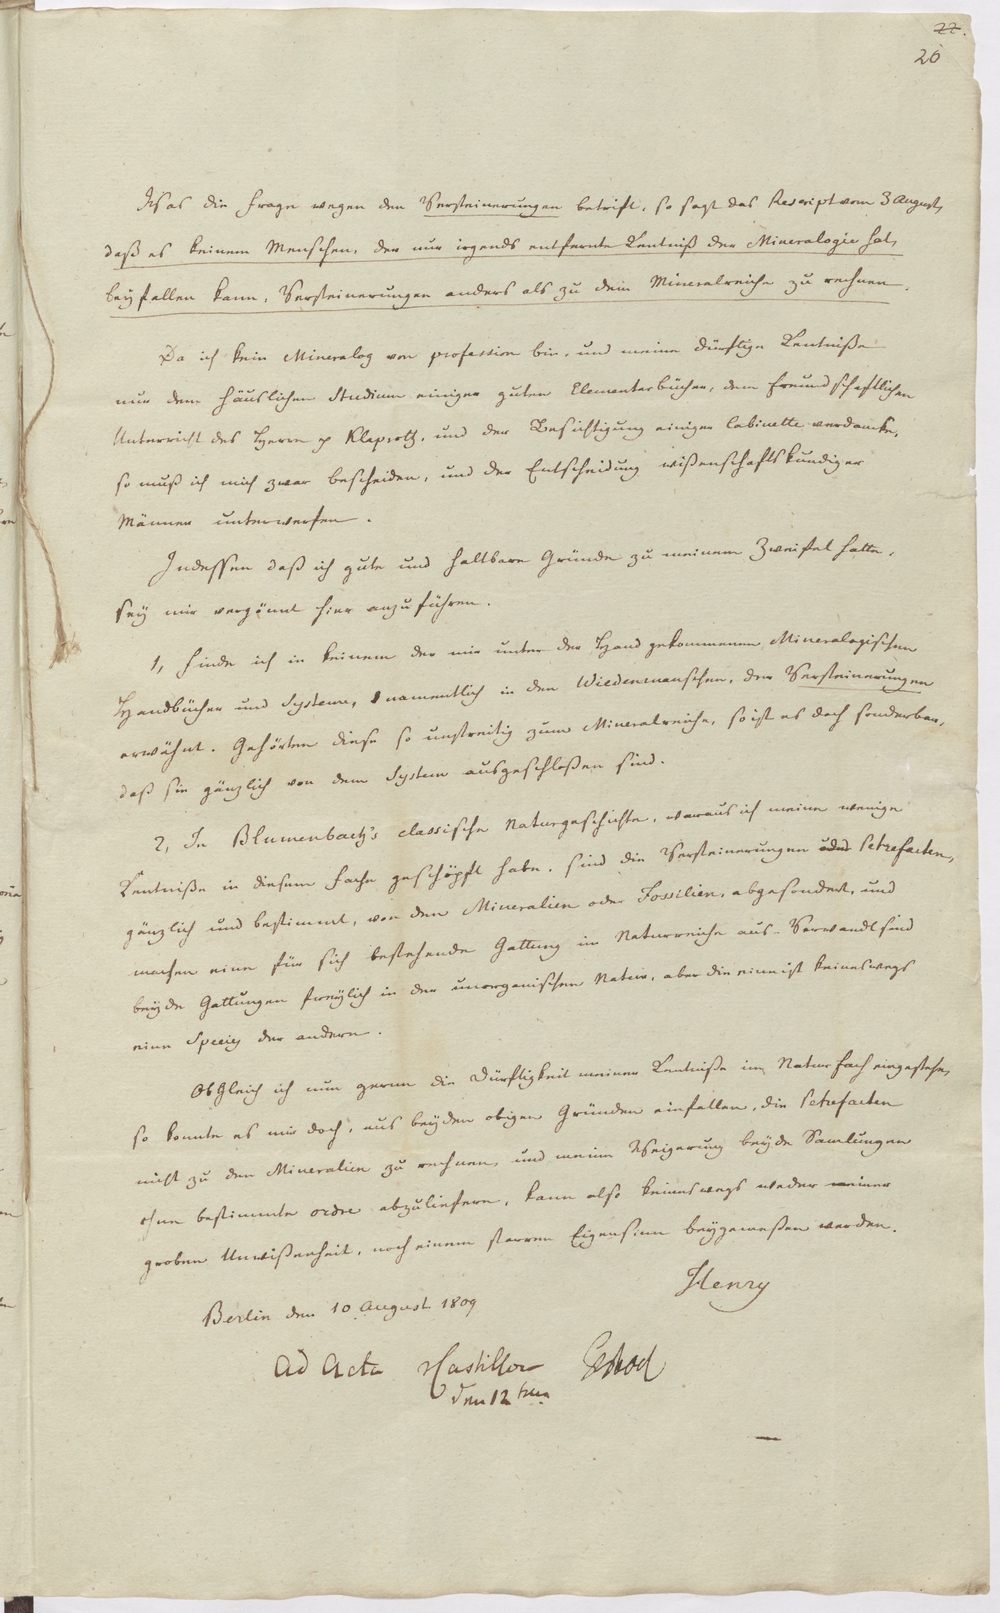 22.
26
Was die Frage wegen den Versteinerungen betrift, so sagt das Rescript vom 3 August,
daß es keinem Menschen, der nur irgends entfernte Kentniß der Mineralogie hat,
beyfallen kann, Versteinerungen anders als zu dem Mineralreiche zu rechnen.
Da ich kein Mineralog von profession bin, und meine dürftige Kentniße
nur dem häuslichen Studium einiger guten Elementarbücher, dem freundschaftlichen
Unterricht des Herrn p Klaproth, und der Besichtigung einiger Cabinette verdancke,
so muß ich mich zwar bescheiden, und der Entscheidung wißenschaftskundiger
Männer unterwerfen.
Indessen daß ich gute und haltbare Gründe zu meinem Zweifel hatte,
sey mir vergönnt hier anzuführen.
1, Finde ich in keinem der mir unter der Hand gekommenen Mineralogischen
Handbücher und Systeme, namentlich in den Wiedemannschen, der Versteinerungen
erwähnt. Gehörten diese so unstreitig zum Mineralreiche, so ist es doch sonderbar,
daß sie gänzlich von dem System ausgeschloßen sind.
2, In Blumenbach's classische Naturgeschichte, woraus ich meine wenige
Kentniße in diesem Fache geschöpft habe, sind die Versteinerungen oder Petrefacten,
gänzlich und bestimmt, von den Mineralien oder Fossilien, abgesondert, und
machen eine für sich bestehende Gattung im Naturreiche aus. Verwandt sind
beyde Gattungen freylich in der unorganischen Natur, aber die eine ist keineswegs
eine Species der andern.
Obgleich ich nun gerne die Dürftigkeit meiner Kentniße im Naturfach eingestehe,
so konnte es mir doch, aus beyden obigen Gründen einfallen, die Petrefacten
nicht zu den Mineralien zu rechnen, und meine Weigerung beyde Samlungen
ohne bestimmte ordre abzuliefern, kann also keineswegs weder meiner
groben Unwißenheit, noch einem starren Eigensinn beygemeßen werden.
Henry
Berlin den 10 August 1809
ad Acta Castillon
den 12ten